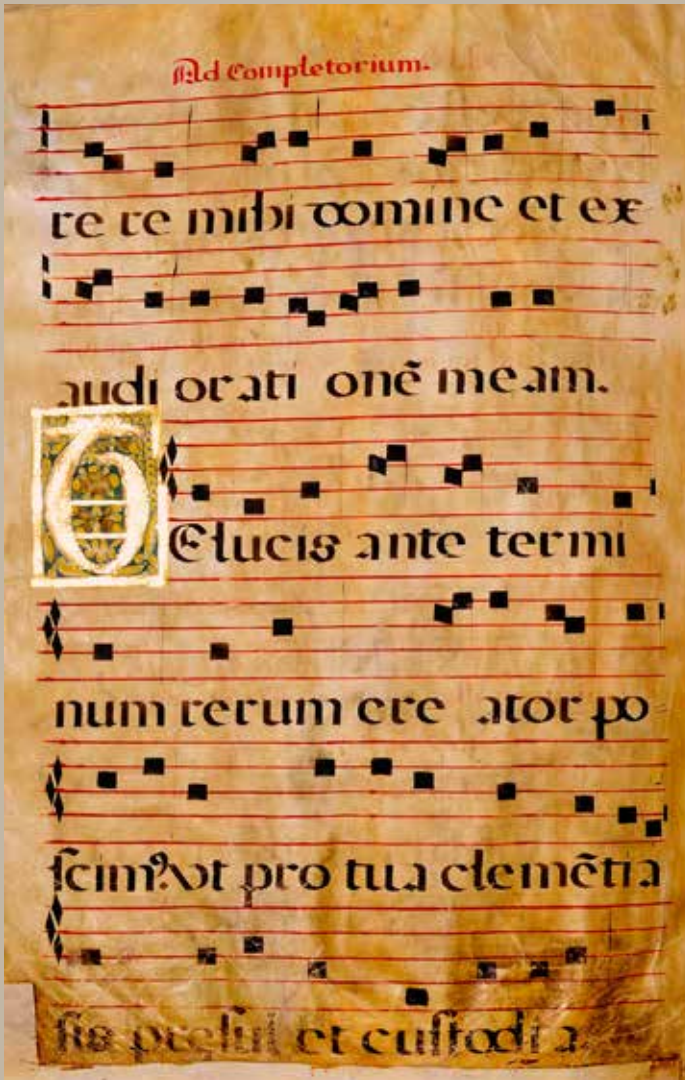 Ad Completorium.
re re mihi domine et ex
audi orati onē meam.
TE lucis ante termi
num rerum cre ator po
scimꝰ vt pro tua clemētia
sis presul et custodi a